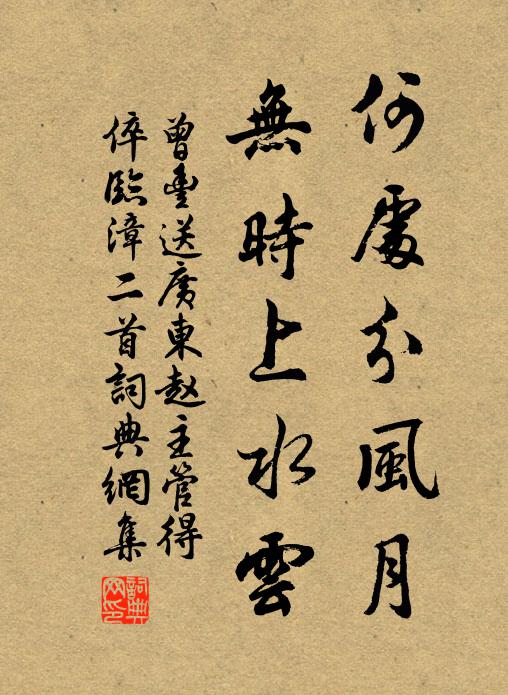 何處分風月
無時上水雲
曾豐送廣東趙主管得
倅臨漳二首詞典網集
詞典
网印